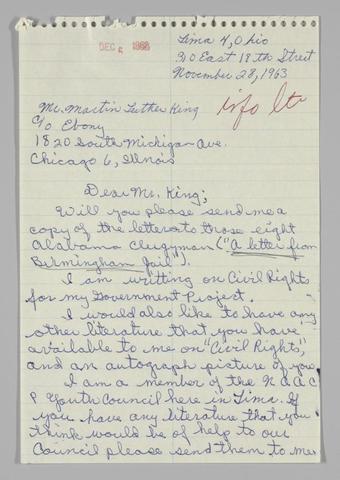 Lima N, Ohio
DEC 6
310 East 18th Street
November 28, 1963
info ltr
Mr. Martin Luther King
C/o Ebony
1820 South Michigan Ave.
Chicago 6, Illinois
Dear Mr. King;
Will you please send me a
copy of the letter to those eight
Alabama Clergyman ("A letter from
Birmingham Jail").
I am writing on Civil Rights
for my Government Project.
I would also like to have any
other literature that you have
available to me on "Civil Rights",
and an autograph picture of you.
I am a member of the N A A C
P Youth Council here in Lima. If
you have any literature that you
think would be of help to our
Council please send them to me